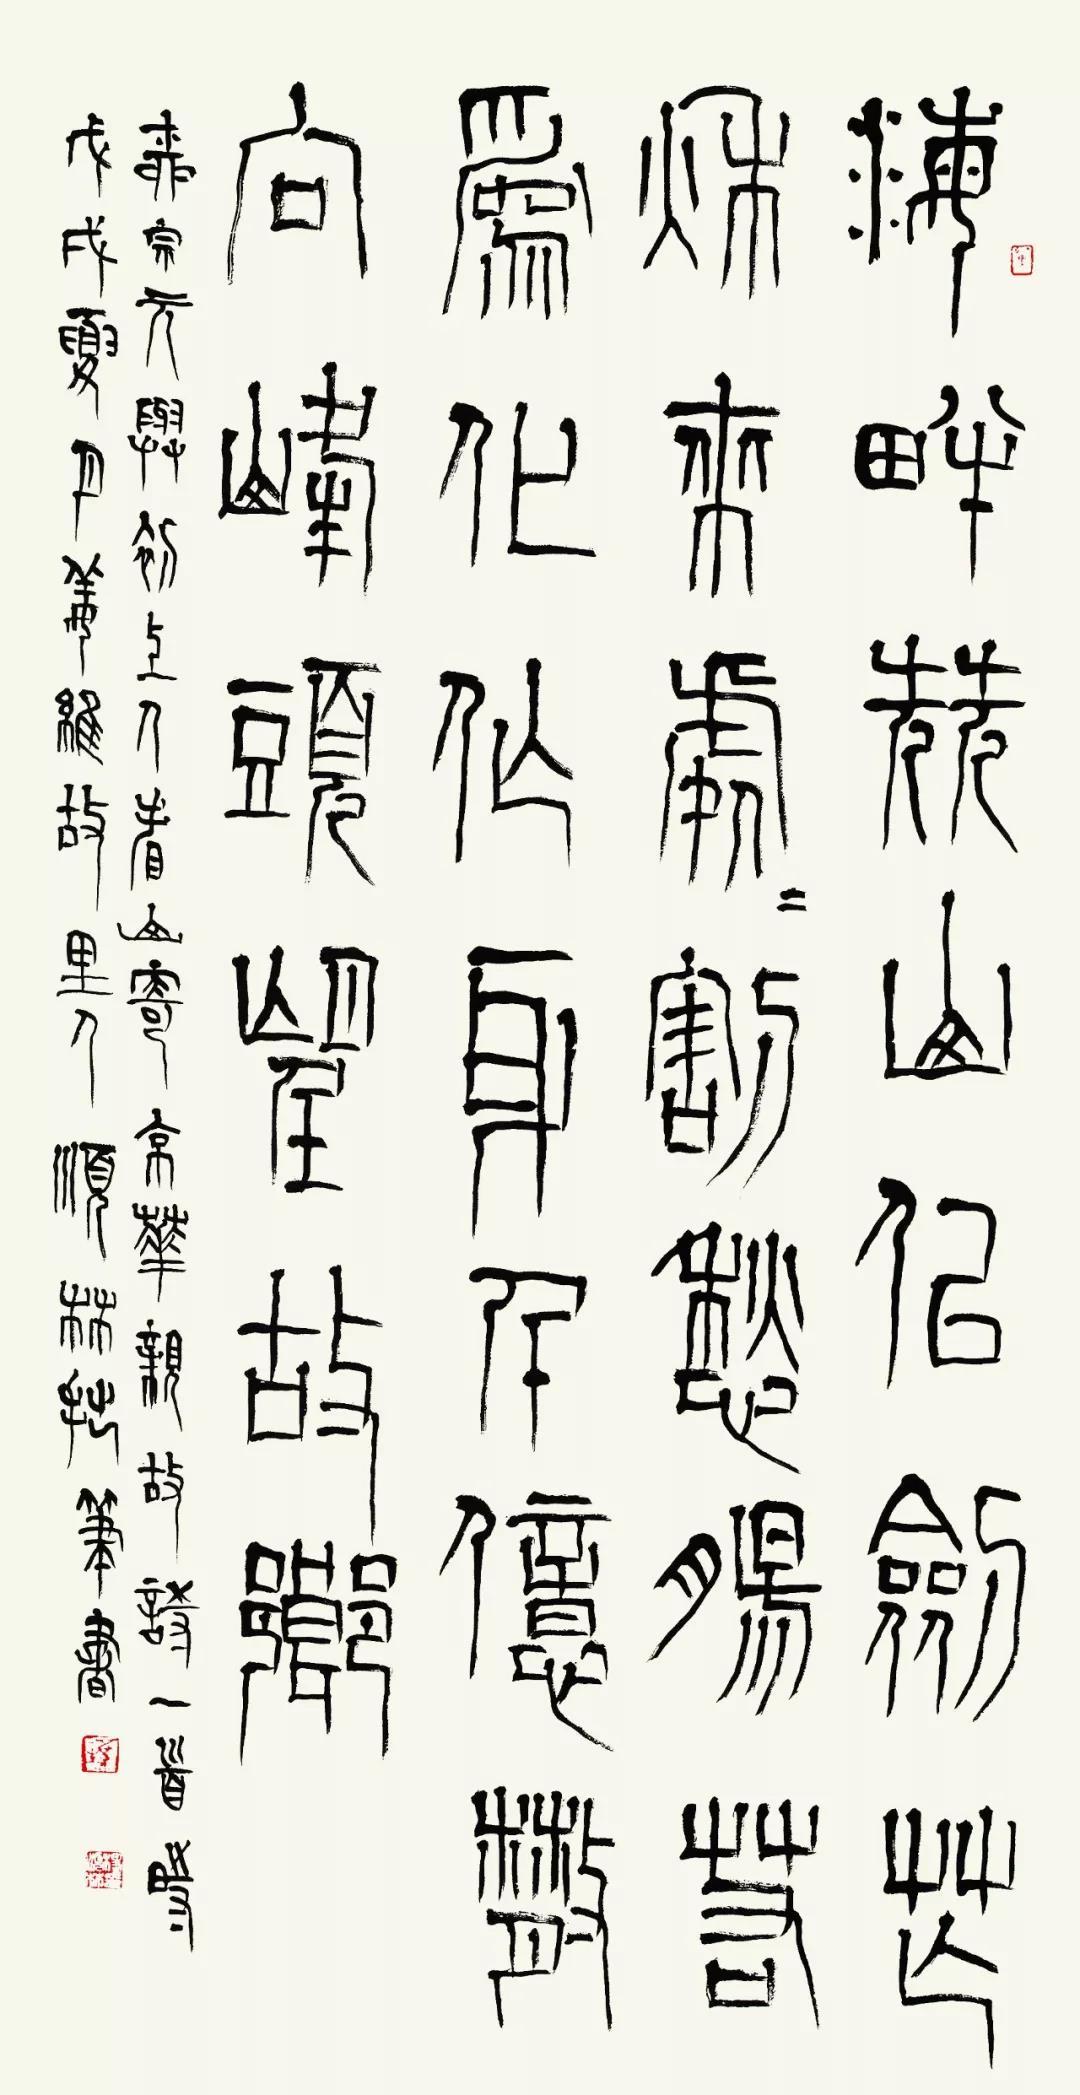 海畔尖山佀劍芒
秋來處〻割愁腸若
爲化作身千億散
向峰頭望故鄉
柳宗元與初上人看山寄京華親故詩一首歲
戊戌夏月維故里人順林拙筆書